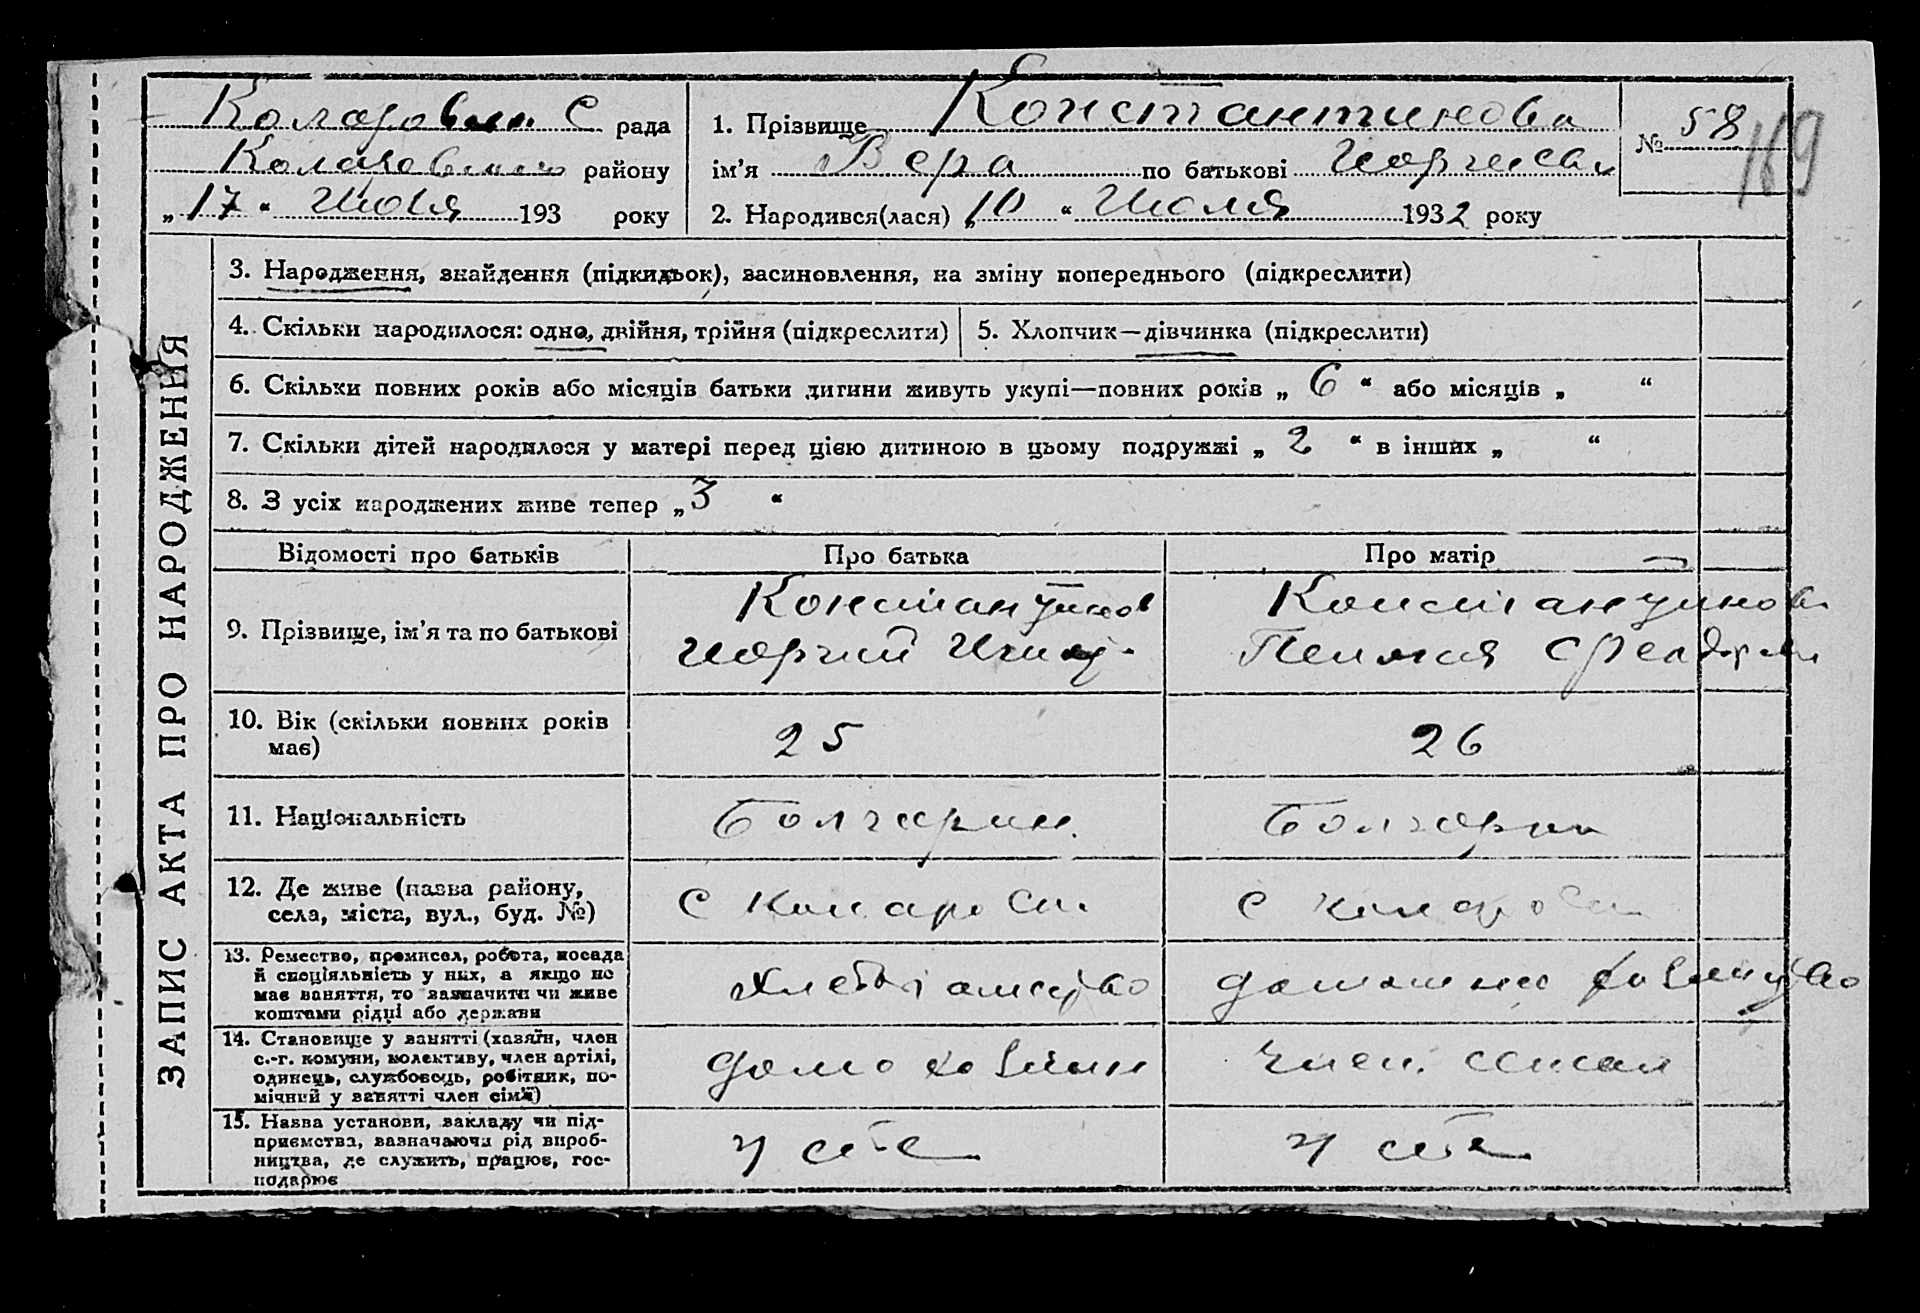 Коларовск. С рада
Коларовского району
„ 17 “ Июля 193 року
1. Прізвище Константинова
ім’я Вера по батькові
2. Народився(лася) „ 10 “ Июля 1932 року
№ 58
169
ЗАПИС АКТА ПРО НАРОДЖЕННЯ
3. Народження, знайдення (підкидьок), засиновлення, на зміну попереднього (підкреслити)
4. Скільки народилося: одно, двійня, трійня (підкреслити)
5. Хлопчик—дівчинка (підкреслити)
6. Скільки повних років або місяців батьки дитини живуть укупі—повних років „ 6 “ або місяців „ “
7. Скільки дітей народилося у матері перед цією дитиною в цьому подружжі „ 2 “ в інших „ “
8. З усіх народжених живе тепер „ 3 “
Відомості про батьків
Про батька
Про матір
9. Прізвище, ім’я та по батькові
Константинов
Константинова
10. Вік (скільки повних років
має)
25
26
11. Національність
Болгарин
Болгарка
12. Де живе (назва району,
села, міста, вул., буд. №)
с Коларовка
с Коларовка
13. Ремество, промисел, робота, посада
й спеціяльність у них, а якщо не
має заняття, то зазначити чи живе
коштами рідні або держави
домашнее
14. Становище у занятті (хазяїн, член
с.-г. комуни, колективу, член артілі,
одинець, службовець, робітник, по-
мічний у занятті член сім’ї)
домохозяин
член семьи
15. Назва установи, закладу чи під-
приємства, зазначаючи рід вироб-
ництва, де служить, працює, гос-
подарює
у себе
у себе